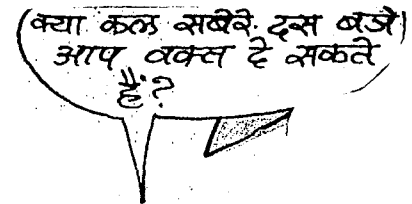 क्या कल सबेरे दस बजे
आप वक्त दे सकते
हैं?